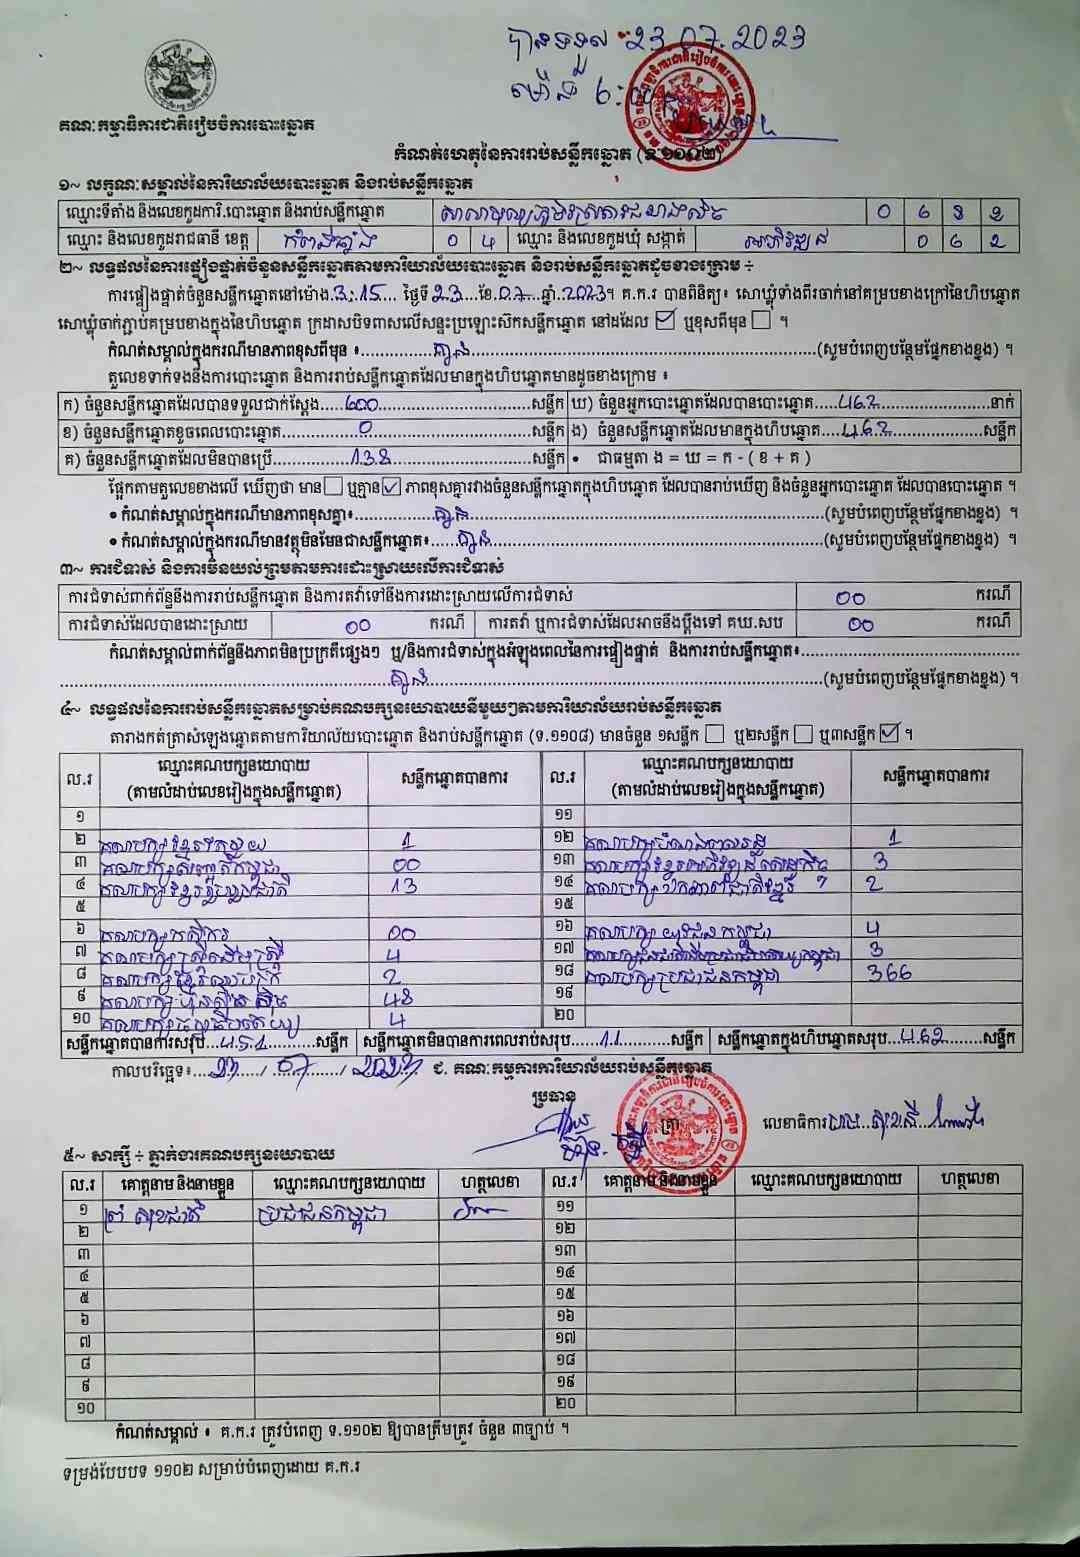 បានទទួល 23.07.2023
ម៉ោង 6:
គណៈកម្មាធិការជាតិរៀបចំការបោះឆ្នោត
កំណត់ហេតុនៃការរាប់សន្លឹកឆ្នោត (ទ.១១០២)
១~ លក្ខណៈសម្គាល់នៃការិយាល័យបោះឆ្នោត និងរាប់សន្លឹកឆ្នោត
ឈ្មោះទីតាំង និងលេខកូដការិ.បោះឆ្នោត និងរាប់សន្លឹកឆ្នោត
ឈ្មោះ និងលេខកូដរាជធានី ខេត្ត កំពង់ឆ្នាំង 0 4 ឈ្មោះ និងលេខកូដឃុំ សង្កាត់ 0 6 2
២~ លទ្ធផលនៃការផ្ទៀងផ្ទាត់ចំនួនសន្លឹកឆ្នោតតាមការិយាល័យបោះឆ្នោត និងរាប់សន្លឹកឆ្នោតដូចខាងក្រោម ÷
ការផ្ទៀងផ្ទាត់ចំនួនសន្លឹកឆ្នោតនៅម៉ោង 3:15 ថ្ងៃទី 23 ខែ 07 ឆ្នាំ 2023។ គ.ក.រ បានពិនិត្យ៖ សោឃ្លុំទាំងពីរចាក់នៅគម្របខាងក្រៅនៃហិបឆ្នោត
សោឃ្លុំចាក់ភ្ជាប់គម្របខាងក្នុងនៃហិបឆ្នោត ក្រដាសបិទពាសលើសន្ទះប្រឡោះស៊កសន្លឹកឆ្នោត នៅដដែល ☑ ឬខុសពីមុន ☐ ។
កំណត់សម្គាល់ក្នុងករណីមានភាពខុសពីមុន ៖ គ្មាន (សូមបំពេញបន្ថែមផ្នែកខាងខ្នង) ។
តួលេខទាក់ទងនឹងការបោះឆ្នោត និងការរាប់សន្លឹកឆ្នោតដែលមានក្នុងហិបឆ្នោតមានដូចខាងក្រោម ៖
ក) ចំនួនសន្លឹកឆ្នោតដែលបានទទួលជាក់ស្តែង 600 សន្លឹក ឃ) ចំនួនអ្នកបោះឆ្នោតដែលបានបោះឆ្នោត 462 នាក់
ខ) ចំនួនសន្លឹកឆ្នោតខូចពេលបោះឆ្នោត 0 សន្លឹក ង) ចំនួនសន្លឹកឆ្នោតដែលមានក្នុងហិបឆ្នោត 462 សន្លឹក
គ) ចំនួនសន្លឹកឆ្នោតដែលមិនបានប្រើ 138 សន្លឹក • ជាធម្មតា ង = ឃ = ក - ( ខ + គ )
ផ្អែកតាមតួលេខខាងលើ ឃើញថា មាន ☐ ឬគ្មាន ☑ ភាពខុសគ្នារវាងចំនួនសន្លឹកឆ្នោតក្នុងហិបឆ្នោត ដែលបានរាប់ឃើញ និងចំនួនអ្នកបោះឆ្នោត ដែលបានបោះឆ្នោត ។
• កំណត់សម្គាល់ក្នុងករណីមានភាពខុសគ្នា៖ គ្មាន (សូមបំពេញបន្ថែមផ្នែកខាងខ្នង) ។
• កំណត់សម្គាល់ក្នុងករណីមានវត្ថុមិនមែនជាសន្លឹកឆ្នោត៖ គ្មាន (សូមបំពេញបន្ថែមផ្នែកខាងខ្នង) ។
៣~ ការជំទាស់ និងការមិនយល់ព្រមតាមការដោះស្រាយលើការជំទាស់
ការជំទាស់ពាក់ព័ន្ធនឹងការរាប់សន្លឹកឆ្នោត និងការតវ៉ាទៅនឹងការដោះស្រាយលើការជំទាស់ 00 ករណី
ការជំទាស់ដែលបានដោះស្រាយ 00 ករណី ការតវ៉ា ឬការជំទាស់ដែលអាចនឹងប្តឹងទៅ គឃ.សប 00 ករណី
កំណត់សម្គាល់ពាក់ព័ន្ធនឹងភាពមិនប្រក្រតីផ្សេងៗ ឬ/និងការជំទាស់ក្នុងអំឡុងពេលនៃការផ្ទៀងផ្ទាត់ និងការរាប់សន្លឹកឆ្នោត៖
គ្មាន (សូមបំពេញបន្ថែមផ្នែកខាងខ្នង) ។
៤~ លទ្ធផលនៃការរាប់សន្លឹកឆ្នោតសម្រាប់គណបក្សនយោបាយនីមួយៗតាមការិយាល័យរាប់សន្លឹកឆ្នោត
តារាងកត់ត្រាសំឡេងឆ្នោតតាមការិយាល័យបោះឆ្នោត និងរាប់សន្លឹកឆ្នោត (ទ.១១០៨) មានចំនួន ១សន្លឹក ☐ ឬ២សន្លឹក ☐ ឬ៣សន្លឹក ☑ ។
ល.រ ឈ្មោះគណបក្សនយោបាយ (តាមលំដាប់លេខរៀងក្នុងសន្លឹកឆ្នោត) សន្លឹកឆ្នោតបានការ ល.រ ឈ្មោះគណបក្សនយោបាយ (តាមលំដាប់លេខរៀងក្នុងសន្លឹកឆ្នោត) សន្លឹកឆ្នោតបានការ
១ ១១
២ គណបក្ស 1 ១២ គណបក្ស 1
៣ គណបក្ស 00 ១៣ គណបក្សខ្មែរអភិវឌ្ឍន៍សេដ្ឋកិច្ច 3
៤ គណបក្ស 13 ១៤ គណបក្សឯកភាពជាតិខ្មែរ 2
៥ ១៥
៦ គណបក្សកសិករ 00 ១៦ គណបក្សយុវជនកម្ពុជា 4
៧ គណបក្សស្ត្រីដើម្បីស្ត្រី 4 ១៧ គណបក្ស 3
៨ គណបក្ស 2 ១៨ គណបក្សប្រជាជនកម្ពុជា 366
៩ គណបក្សហ៊្វុនស៊ិនប៉ិច 48 ១៩
១០ គណបក្សធម្មាធិបតេយ្យ 4 ២០
សន្លឹកឆ្នោតបានការសរុប 451 សន្លឹក សន្លឹកឆ្នោតមិនបានការពេលរាប់សរុប 11 សន្លឹក សន្លឹកឆ្នោតក្នុងហិបឆ្នោតសរុប 462 សន្លឹក
កាលបរិច្ឆេទ៖ 23 / 07 / 2023 ជ. គណៈកម្មការការិយាល័យរាប់សន្លឹកឆ្នោត
ប្រធាន
ត្រា លេខាធិការ
៥~ សាក្សី ÷ ភ្នាក់ងារគណបក្សនយោបាយ
ល.រ គោត្តនាម និងនាមខ្លួន ឈ្មោះគណបក្សនយោបាយ ហត្ថលេខា ល.រ គោត្តនាម និងនាមខ្លួន ឈ្មោះគណបក្សនយោបាយ ហត្ថលេខា
១ ប្រជាជនកម្ពុជា ១១
២ ១២
៣ ១៣
៤ ១៤
៥ ១៥
៦ ១៦
៧ ១៧
៨ ១៨
៩ ១៩
១០ ២០
កំណត់សម្គាល់ ៖ គ.ក.រ ត្រូវបំពេញ ទ.១១០២ ឱ្យបានត្រឹមត្រូវ ចំនួន ៣ច្បាប់ ។
ទម្រង់បែបបទ ១១០២ សម្រាប់បំពេញដោយ គ.ក.រ